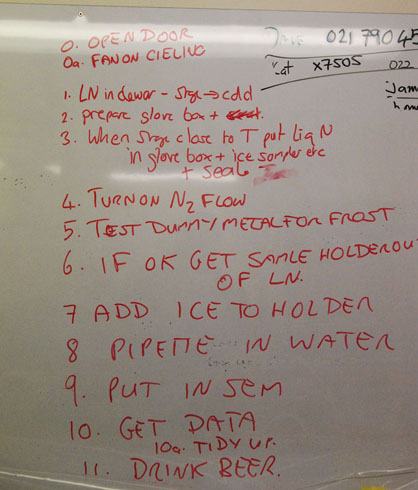 0. OPEN DOOR
0a. FAN ON CIELING
021 79045
x7505 022
1. LN in dewar - stage → cold
2. prepare glove box +
3. When stage close to T put Liq N
in glove box + ice samples etc
+ seal
4. TURN ON N2 FLOW
5. TEST DUMMY/METAL FOR FROST
6. IF OK GET SAMLE HOLDER OU
OF LN.
7 ADD ICE TO HOLDER
8 PIPETTE IN WATER
9. PUT IN SEM
10. GET DATA
10a. TIDY UP.
11. DRINK BEER.